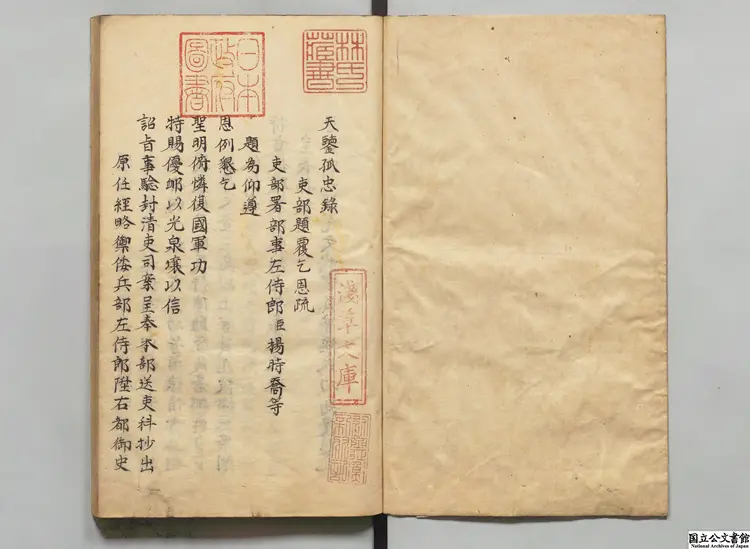 天鑒孤忠錄
吏部題覆乞恩疏
吏部署部事左侍郎臣楊時喬等
題為仰遵
恩例懇乞
聖明俯憐復國軍功
特賜優卹以光泉壤以信
詔旨事驗封清吏司案呈奉本部送吏科抄出
原任經略禦倭兵部左侍郎陞右都御史
林氏藏書
日本政府圖書
淺草文庫
国立公文書館
National Archives of Japan